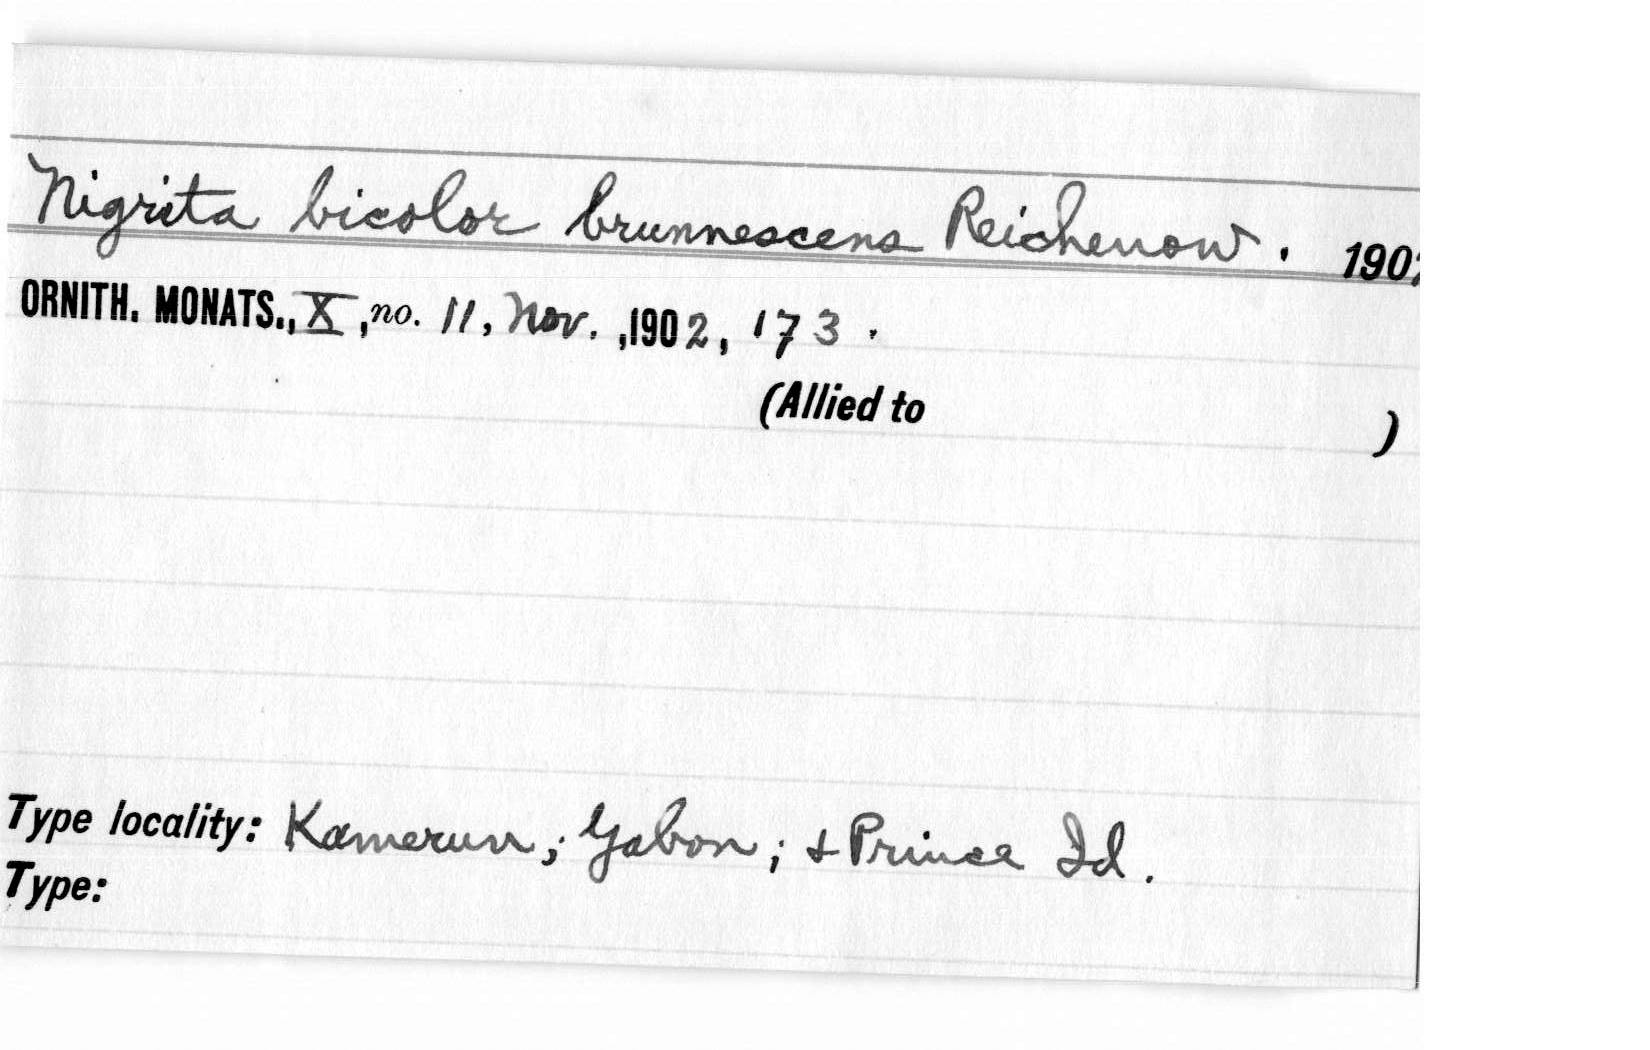 Nigrita bicolor brunnescens Reichenow. 1902
ORNITH. MONATS., X, no. 11, Nov. ,1902, 173.
(Allied to )
Type locality: Kamerun; Gabon; & Prince Id.
Type: